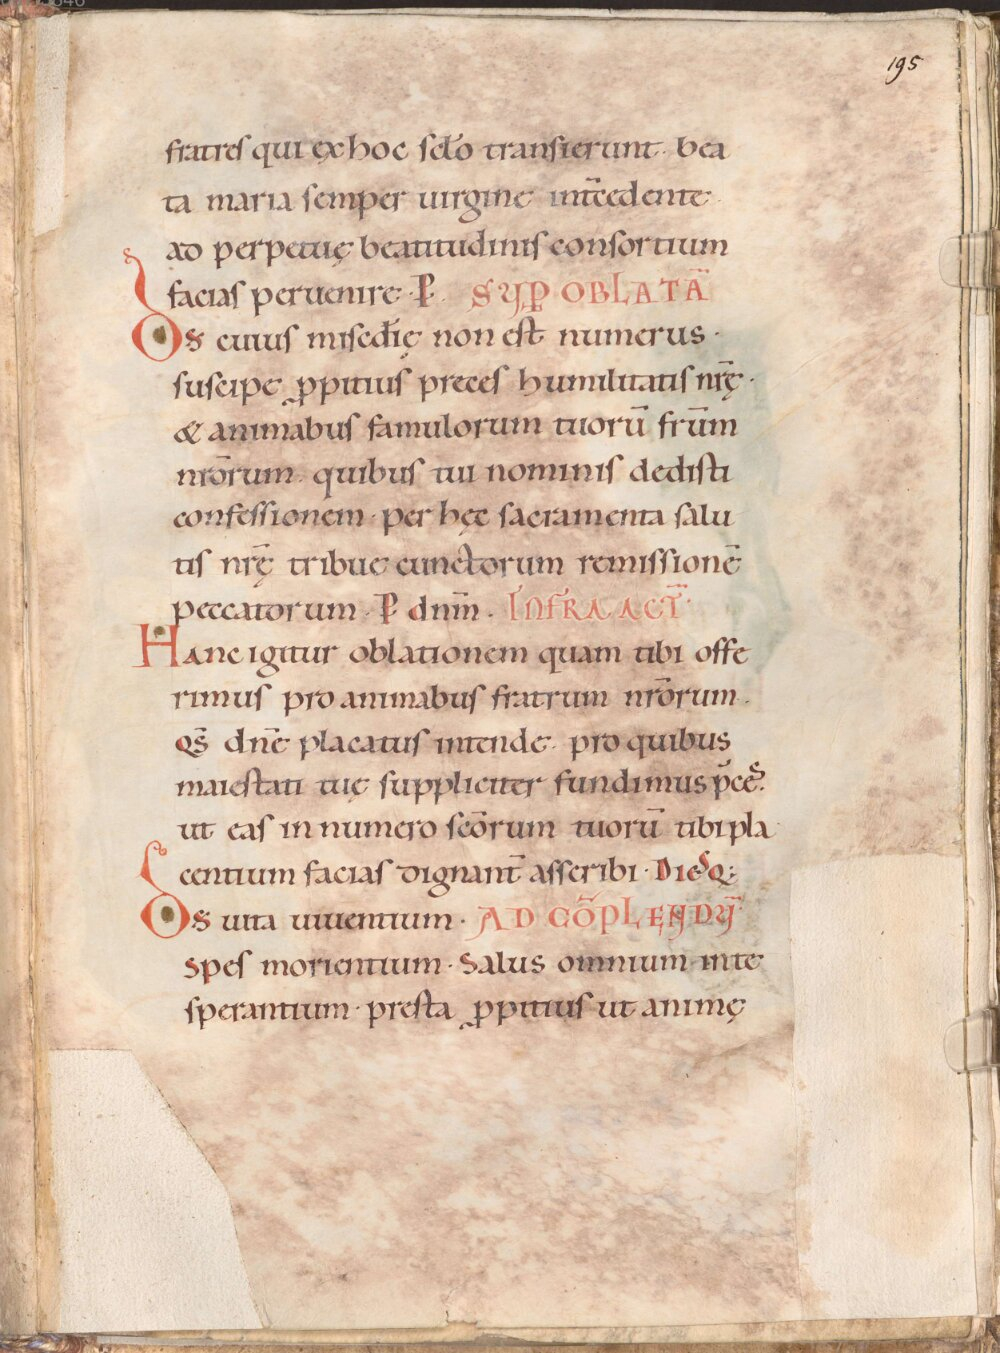 195
fratres qui ex hoc sc̄lo transierunt · bea
ta maria semper uirgine int̄cedente ·
ad perpetuę beatitudinis consortium
facias peruenire · P̄ · SUP̄ OBLATĀ
D̄s cuius misc̄dię non est numerus ·
suscipe ꝓpitius preces humilitatis nr̄ę ·
& animabus famulorum tuorū fr̄um
nr̄orum · quibus tui nominis dedisti
confessionem · per hęc sacramenta salu
tis nr̄ę tribue cunctorum remissionē
peccatorum · P̄ dnm̄ · INFRA ACT̄ ·
Hanc igitur oblationem quam tibi offe
rimus pro animabus fratrum nr̄orum ·
qs̄ dn̄e placatus intende · pro quibus
maiestati tuę suppliciter fundimus p̄ces ·
ut eas in numero sc̄orum tuorū tibi pla
centium facias dignant̄ asscribi · Diesq;
D̄s uita uiuentium · AD CŌPLENDŪ ·
Spes morientium · Salus omnium inte
sperantium · presta ꝓpitius ut animę